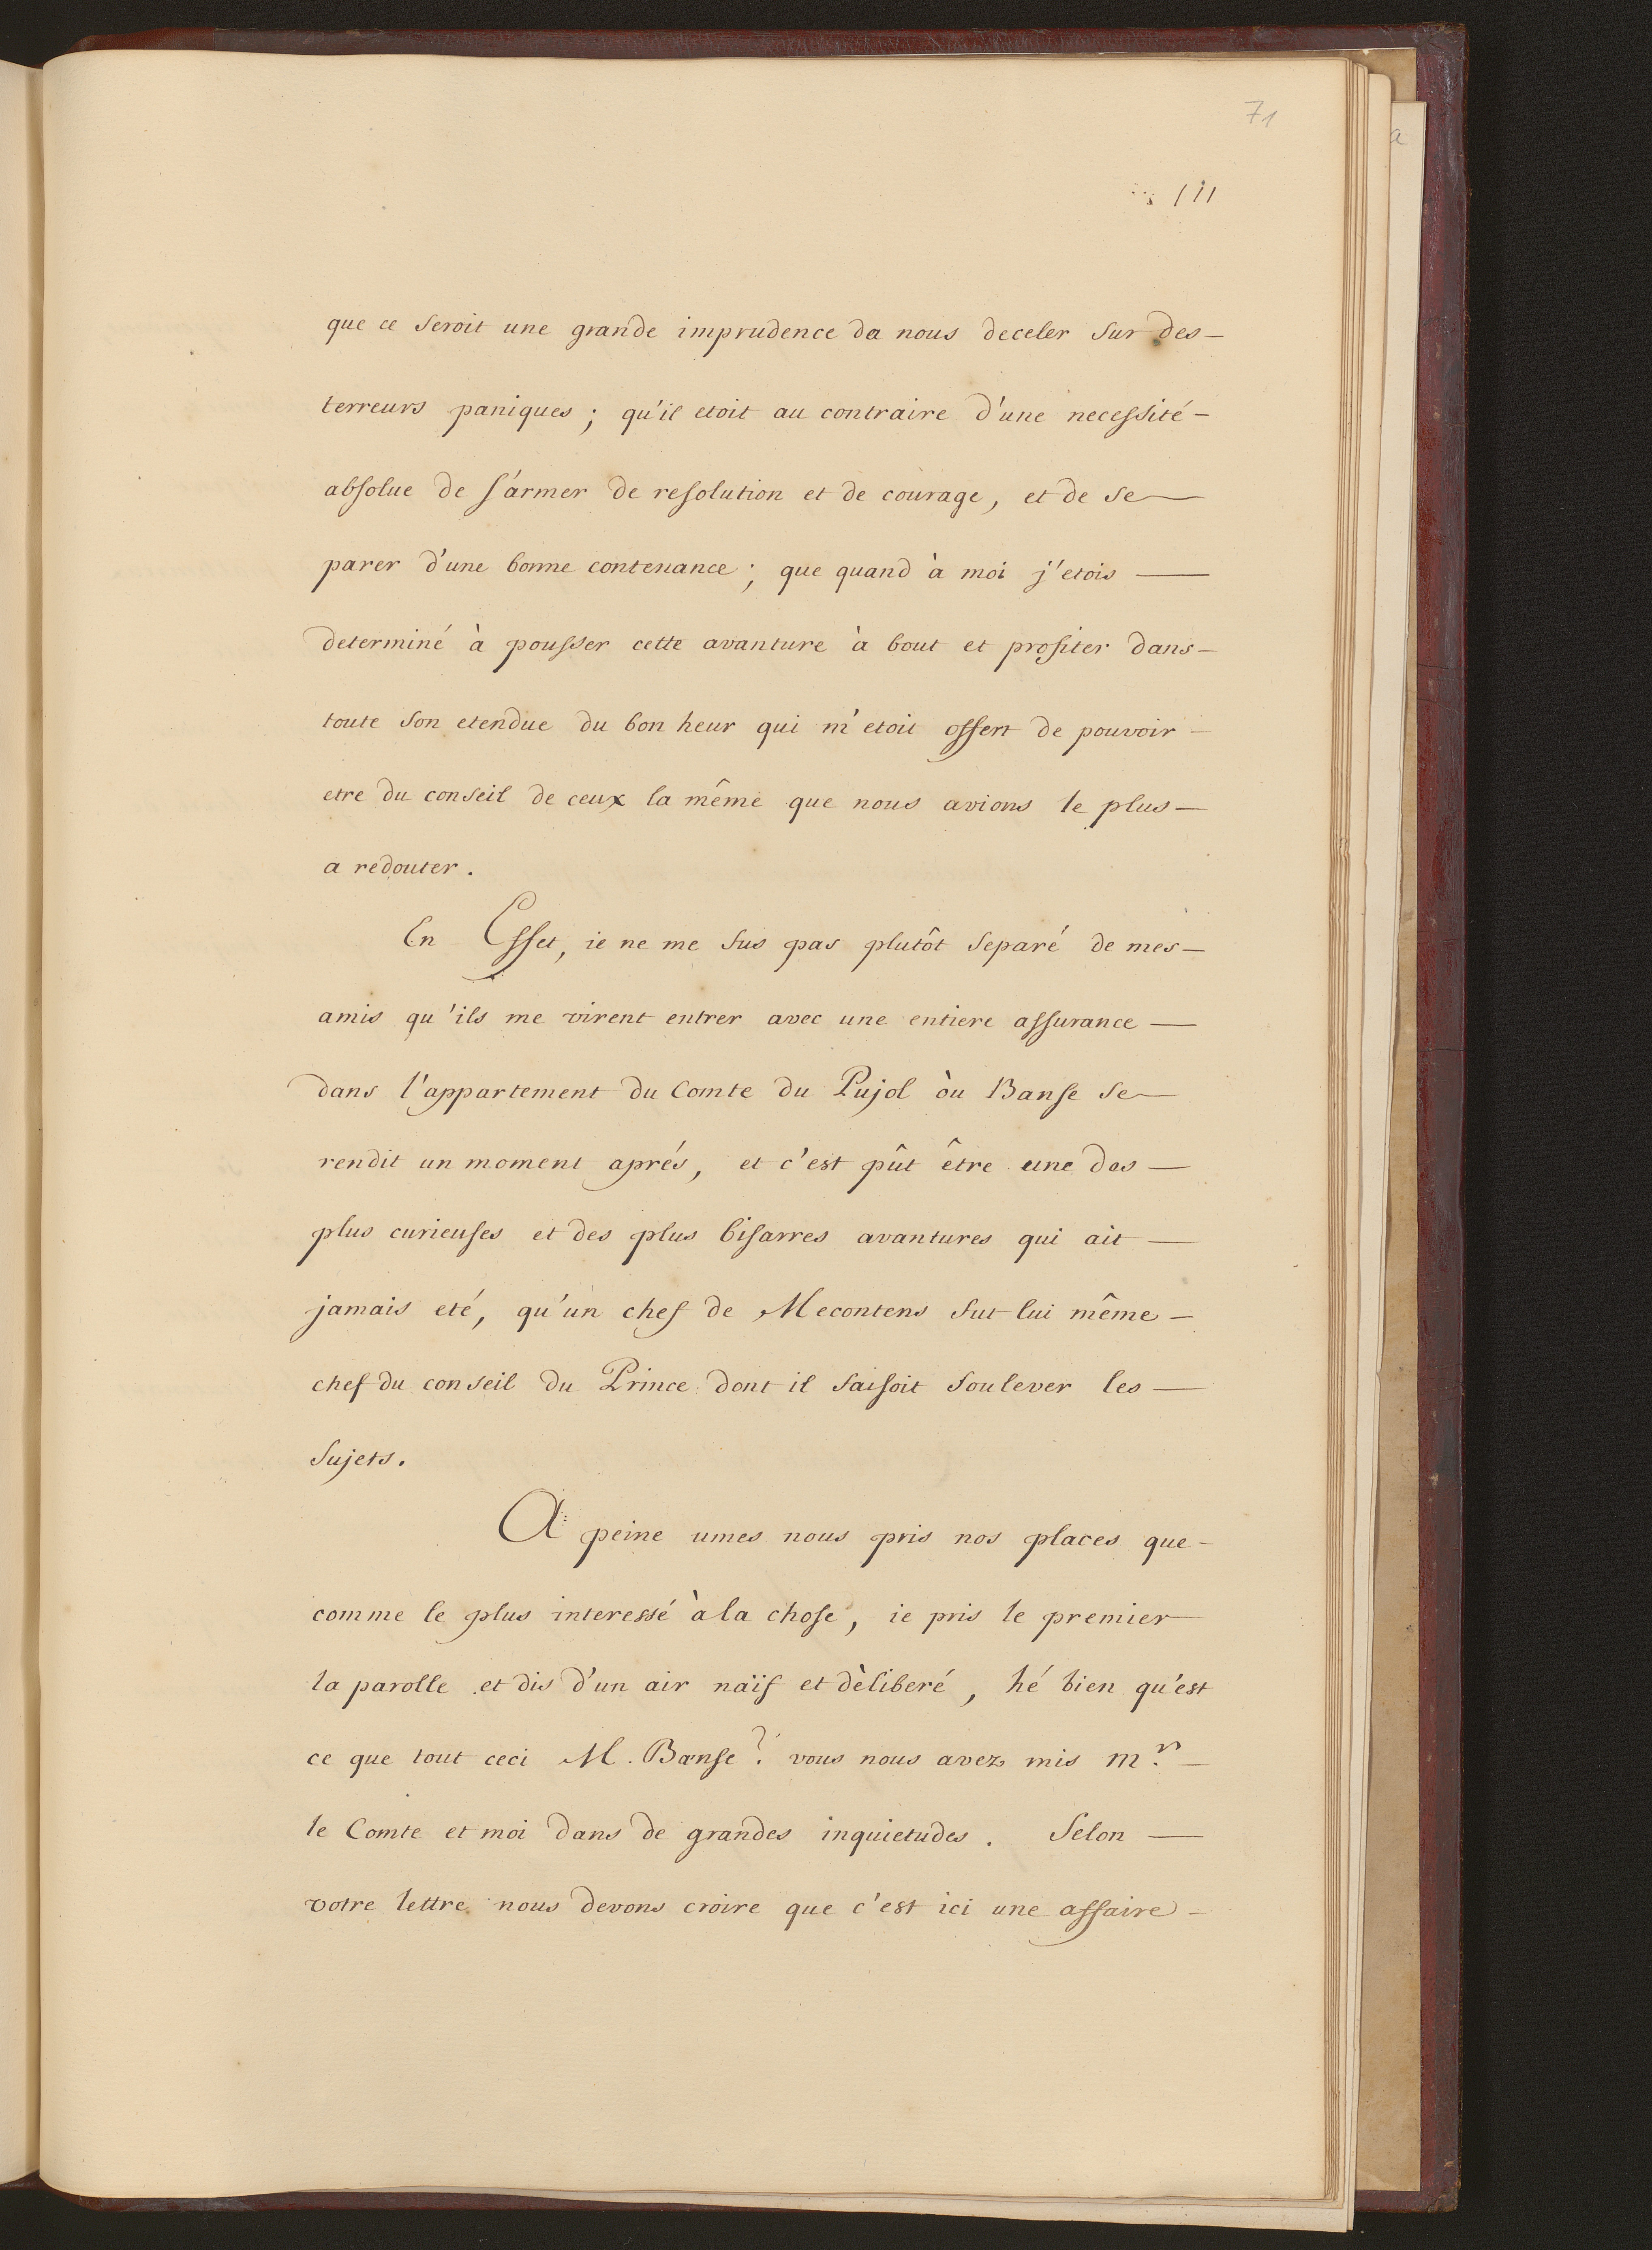 71
111
que ce seroit une grande imprudence de nous deceler sur des—
terreurs paniques ; qu'il etoit au contraire d'une necessité—
absolue de s'armer de resolution et de courage, et de se—
parer d'une bonne contenance ; que quand à moi j'etois —
determiné à pousser cette avanture à bout et profiter dans—
toute son etendue du bon heur qui m'etoit offert de pouvoir—
etre du conseil de ceux la même que nous avions le plus—
a redouter.
En Effet, ie ne me fus pas plutôt separé de mes—
amis qu'ils me virent entrer avec une entiere assurance —
dans l'appartement du Comte du Pujol òu Banse se—
rendit un moment aprés, et c'est pût être une des —
plus curieuses et des plus bisarres avantures qui ait —
jamais eté, qu'un chef de Mecontens fut lui même—
chef du conseil du Prince dont il faisoit soulever les —
sujets.
A peine umes nous pris nos places que—
comme le plus interessé à la chose, ie pris le premier
la parolle et dis d'un air naïf et dèliberé, hé bien qu'est
ce que tout ceci M. Banse ? vous nous avez mis mr. —
le Comte et moi dans de grandes inquietudes. Selon —
votre lettre nous devons croire que c'est ici une affaire—